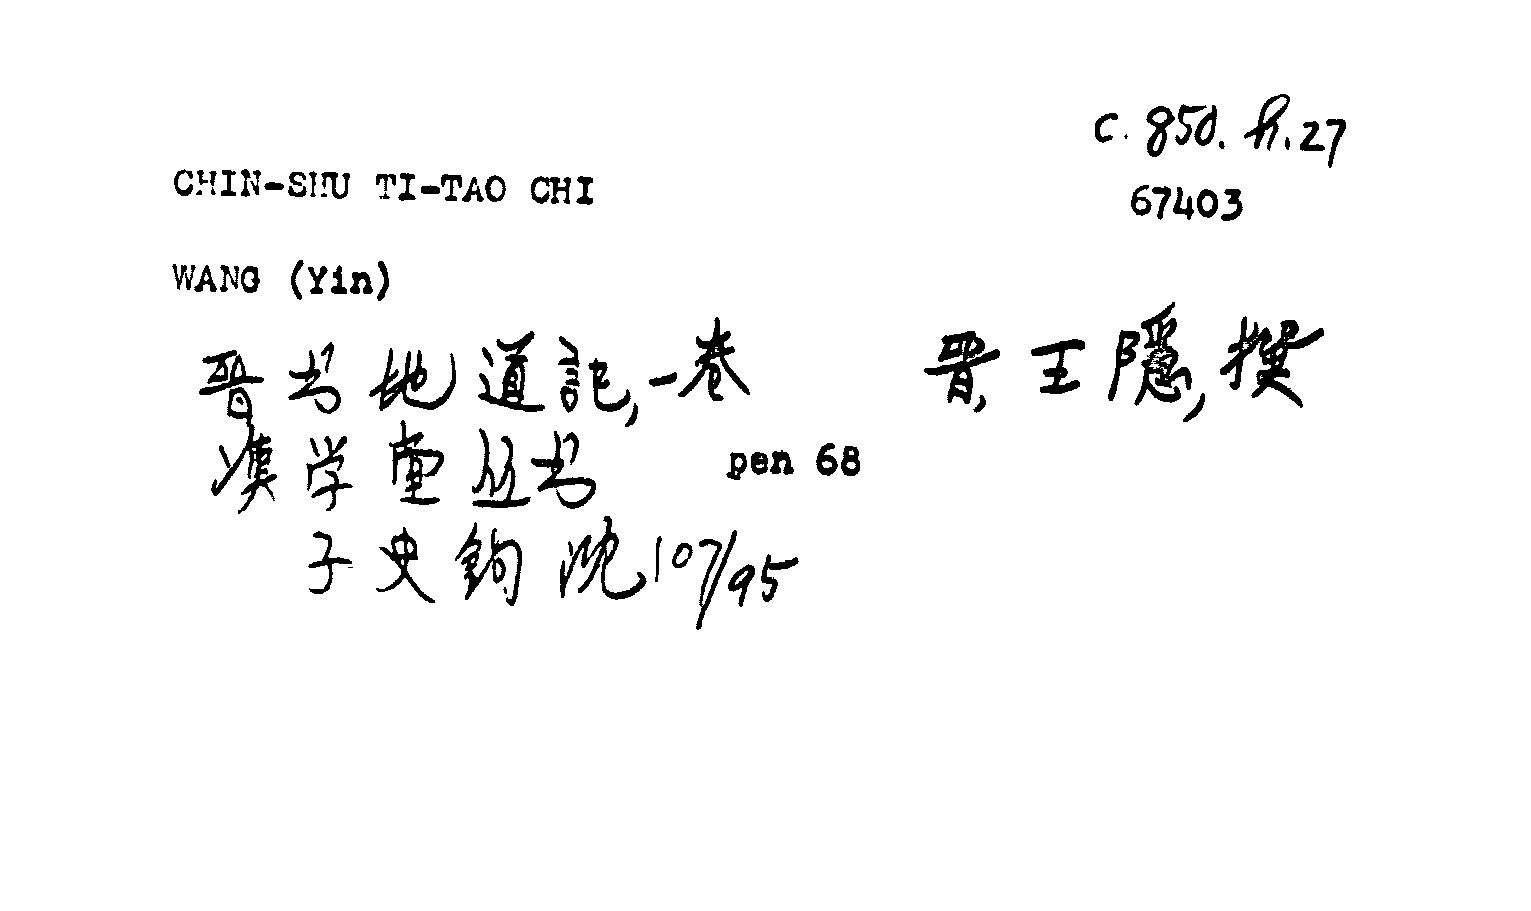 c. 850. h. 27
67403
CHIN-SHU TI-TAO CHI
WANG (Yin)
晋书地道記,一卷 晋,王隱,撰
漢学堂丛书 pen 68
子史鈎沈 107/95